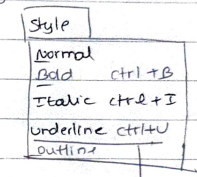 Style
Normal
Bold ctrl + B
Italic ctrl + I
underline ctrl+U
outline